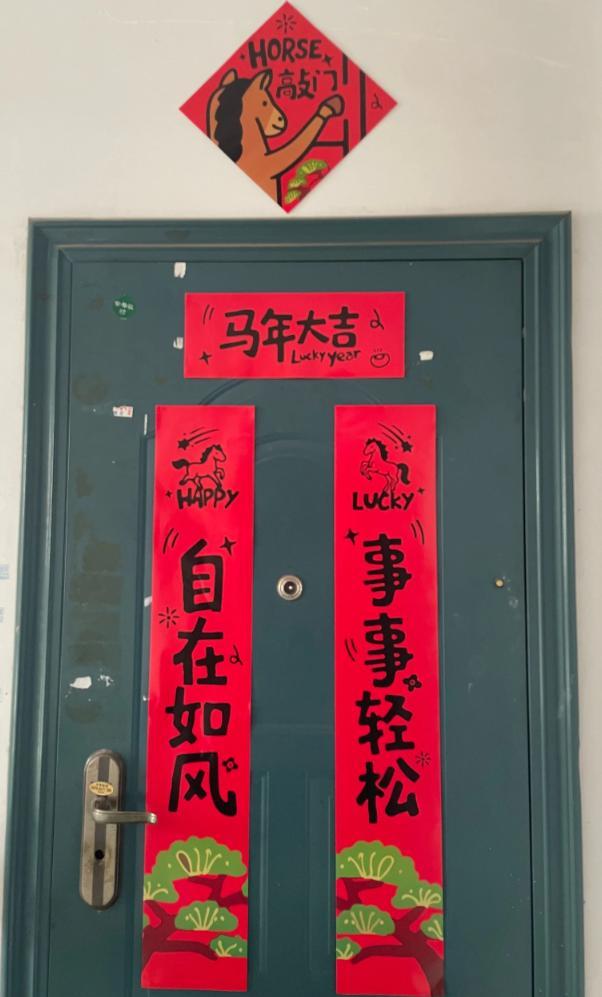 HORSE
高敲门
马年大吉
Lucky year
HAPPY
自在如风
LUCKY
事事轻松